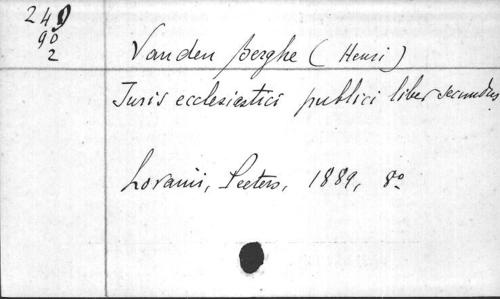 240
90
2
Vanden Berghe (Henri)
Juris ecclesiastici publici liber secundus
Lovanii, Peeters, 1889, 8º